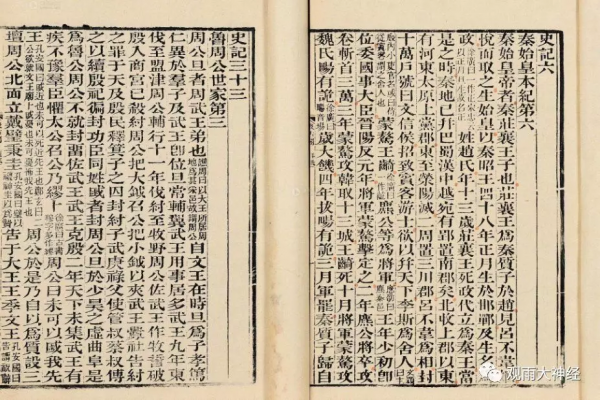 史記六
秦始皇本紀第六
秦始皇帝者秦莊襄王子也莊襄王爲秦質子於趙見呂不韋
悅而取之生始皇以秦昭王四十八年正月生於邯鄲及生名
姓趙氏年十三歲莊襄王死政代立爲秦王當
是之時秦地已幷巴蜀漢中越宛有郢置南郡矣北收上郡以東
有河東太原上黨郡東至滎陽滅二周置三川郡呂不韋爲相封
十萬戶號曰文信侯招致賓客游士欲以幷天下李斯爲舍人
蒙驁王齮麃公等爲將軍王年少初卽
位委國事大臣晉陽反元年將軍蒙驁擊定之二年麃公將卒攻
卷斬首三萬三年蒙驁攻韓取十三城王齮死十月將軍蒙驁攻
魏氏畼有詭歲大饑四年拔畼有詭三月軍罷秦質子歸自
史記三十三
魯周公世家第三
周公旦者周武王弟也譙周曰以太王所居周地爲其采邑故謂周公自文王在時旦爲子孝篤
仁異於羣子及武王卽位旦常輔翼武王用事居多武王九年東
伐至盟津周公輔行十一年伐紂至牧野周公佐武王作牧誓破
殷入商宮已殺紂周公把大鉞召公把小鉞以夾武王釁社告紂
之罪于天及殷民釋箕子之囚封紂子武庚祿父使管叔蔡叔傅
之以續殷祀徧封功臣同姓戚者封周公旦於少昊之虛曲阜是
爲魯公周公不就封留佐武王武王克殷二年天下未集武王有
疾不豫羣臣懼太公召公乃繆卜徐廣曰古書穆字多作繆周公曰未可以戚我先
王周公於是乃自以爲質設三
壇周公北面立戴璧秉圭孔安國曰璧以禮神圭以爲贄告于太王王季文王孔安國曰告謂祝辭
观雨大神经